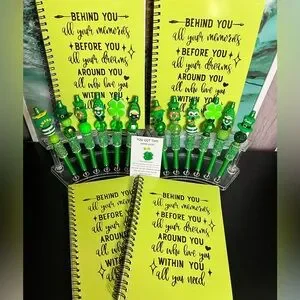 BEHIND YOU
all your memories
BEFORE YOU
all your dreams
AROUND YOU
all who love you
WITHIN YOU
BEHIND YOU
all your memories
BEFORE YOU
all your dreams
AROUND YOU
all who love you
WITHIN YOU
YOU GOT THIS
BEHIND YOU
all your memories
BEFORE YOU
all your dreams
AROUND YOU
all who love you
WITHIN YOU
all you need
BEHIND YOU
all your memories
BEFORE YOU
all your dreams
AROUND YOU
all who love you
WITHIN YOU
all you need